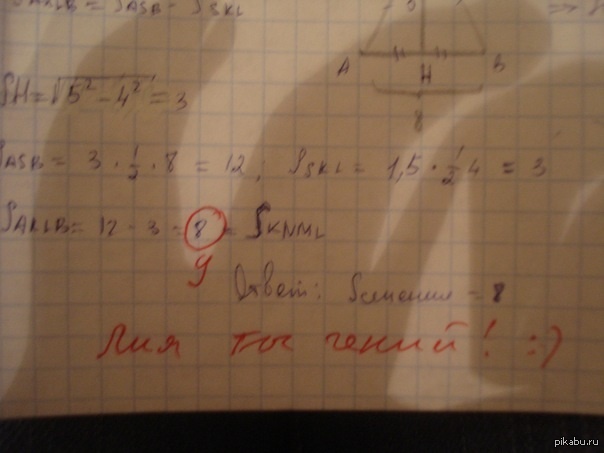 S_AKLB = S_ASB - S_SKL
S
A H B
8
SH = √5² - 4² = 3
S_ASB = 3 · 1/2 · 8 = 12; S_SKL = 1,5 · 1/2 4 = 3
S_AKLB = 12 - 3 = 8 = S_KNML
9
Ответ: Sсечения = 8
Лия ты гений! :)
pikabu.ru